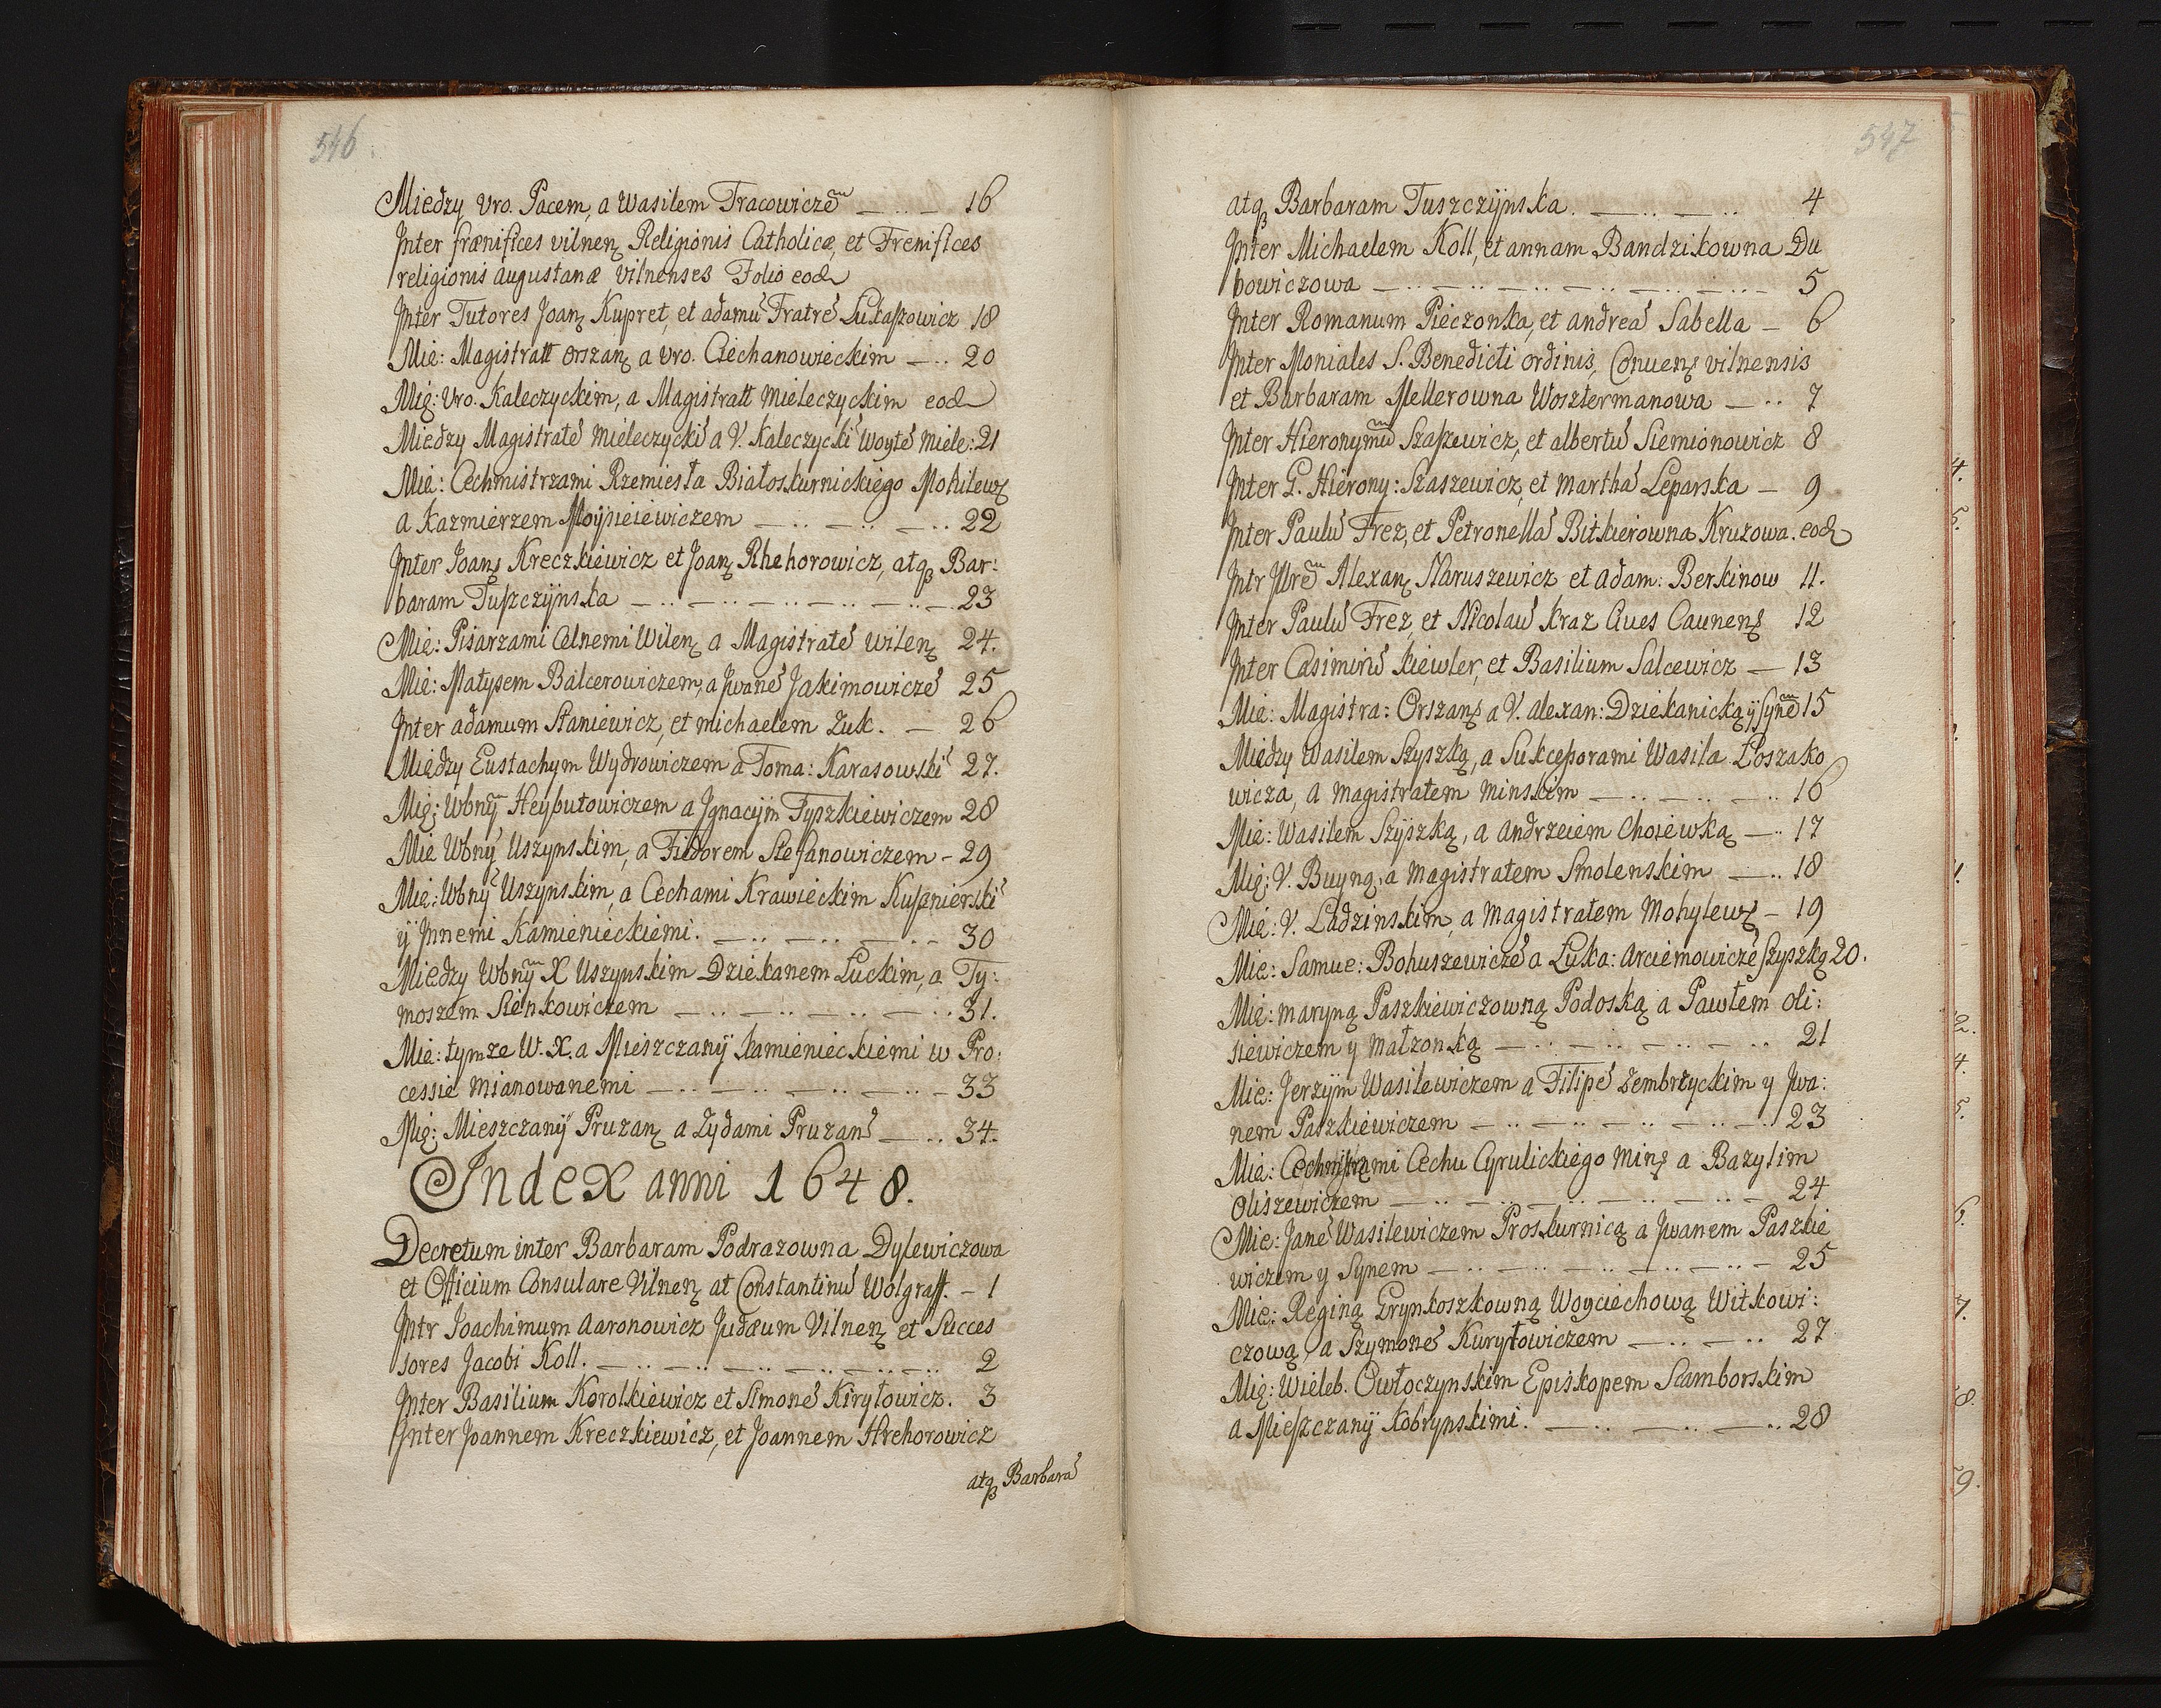 546
Między Vro. Pacem, a Wasilem Tracowicze͠ — .. — 16
Inter frænifices vilnen. Religionis Catholicæ, et Frenifices
religionis augustanæ vilnenses Folio eod
Inter Tutores Joan. Kupret, et adamu͂ Fratre͂ Lukaszowicz 18
Mię: Magistratt Orszan. a Vro. Ciechanowieckim — .. 20
Mię: Vro. Kaleczyckim, a Magistratt Mieleczyckim eod
Między Magistrate͂ Mieleczycki͂ a V. Kaleczycki͂ Woyte͂ Miele: 21
Mię: Cechmistrzami Rzemiesła Białoskurnickiego Mohilew.
a Kazmierzem Moÿsieiewiczem — .. — .. — .. 22
Inter Joan. Kreczkiewicz et Joan. Rhehorowicz, atq Bar:
baram Tuszczÿnska — .. — .. — .. — .. — .. — 23
Mię: Pisarzami Celnemi Wilen. a Magistrate͂ wilen. 24.
Mię: Matysem Balcerowiczem, a Jwane͂ Jakimowicze͂ 25
Inter adamum Staniewicz, et michaelem Zuk. — 26
Między Eustachym Wydrowiczem a Toma: Karasowski͂ 27.
Mię: Wbny͠ Heybutowiczem a Jgnacÿm Tyszkiewiczem 28
Mię Wbny͂ Uszynskim, a Fiedorem Stefanowiczem - 29
Mię: Wbny͂ Uszynskim, a Cechami Krawieckim Kusnierski͂
ÿ Jnnemi Kamienieckiemi. — .. — .. — .. - 30
Miedzy Wbny͠ X Uszynskim Dziekanem Łuckim, a Ty:
moszem Sienkowiczem — .. — .. — .. — .. 31.
Mię: tymze W. X. a Mieszczanÿ Kamienieckiemi w Pro:
cessie mianowanemi — .. — .. — .. — .. - 33
Mię: Mieszczanÿ Pruzan. a Zydami Pruzan. — .. 34.
Index anni 1648.
Decretum inter Barbaram Podrazowna Dylewiczowa
et Officium Consulare Vilnen. at Constantinu͂ Wolgraff. - 1
Intr Joachimum Aaronowicz Judæum Vilnen. et Succes
sores Jacobi Koll. — .. — .. — .. — .. — .. — .. 2
Inter Basilium Korolkiewicz et Simone͂ Kiryłowicz. 3
Inter Joannem Kreczkiewicz, et Joannem Hrehorowicz
atq Barbara͂
547
atq Barbaram Tuszczÿnska. — .. — .. 4
Inter Michaelem Koll, et annam Bandzikowna Du
bowiczowa — .. — .. — .. — .. — .. — .. - 5
Inter Romanum Pieczonka, et andrea͂ Sabella — 6
Inter Moniales S. Benedicti ordinis, Conuen. vilnensis
et Barbaram Mellerowna Wosztermanowa — .. 7
Inter Hieronymu͠ Szaszewicz, et albertu͂ Siemionowicz 8
Inter G. Hierony: Szaszewicz, et martha͂ Leparska — 9
Inter Paulu͂ Frez, et Petronella͂ Bitkierowna Kruzowa. eod
Intr Jllre͠ Alexan. Naruszewicz et adam: Berkinow 11.
Inter Paulu͂ Frez, et Nicolau͂ Kraz Ciues Caunen. 12
Inter Casimiru͂ Kiewler, et Basilium Salcewicz — 13
Mię: Magistra: Orszan. a V. alexan: Dziekanicką ÿ Syne͠ 15
Między Wasilem Szyszką, a Sukcessorami Wasila Łoszako
wicza, a magistratem Minskim — .. — .. — .. 16
Mię: Wasilem Szÿszką, a andrzeiem Choiewką — .. 17
Mię: V. Buyną, a magistratem Smolenskim — .. 18
Mię: V. Ladzinskim, a magistratem Mohylew. - 19
Mię: Samue: Bohuszewicze͂ a Łuka: arciemowicze͂ Szyszką 20.
Mię: maryną Paszkiewiczowną Podoską a Pawłem Oli:
siewiczem y małzonką — .. — .. — .. — .. 21
Mię: Jerzÿm Wasilewiczem a Filipe͂ Zembrzyckim y Jwa:
nem Paszkiewiczem — .. — .. — .. — .. — .. 23
Mię: Cechmistrzami Cechu Cyrulickiego Min. a Bazylim
Oliszewiczem — .. — .. — .. — .. — .. — 24
Mię: Jane͂ Wasilewiczem Proskurnicą a Jwanem Paszkie
wiczem y Synem — .. — .. — .. — .. — .. - 25
Mię: Reginą Grynkoszkowną Woyciechową Witkowi:
czową, a Szymone͂ Kuryłowiczem — .. — .. 27
Mię: Wieleb. Owłoczynskim Episkopem Samborskim
a Mieszczanÿ Kobrynskimi. — .. — .. — .. 28
4.
5.
2.
4.
5.
6.
7.
8
9.